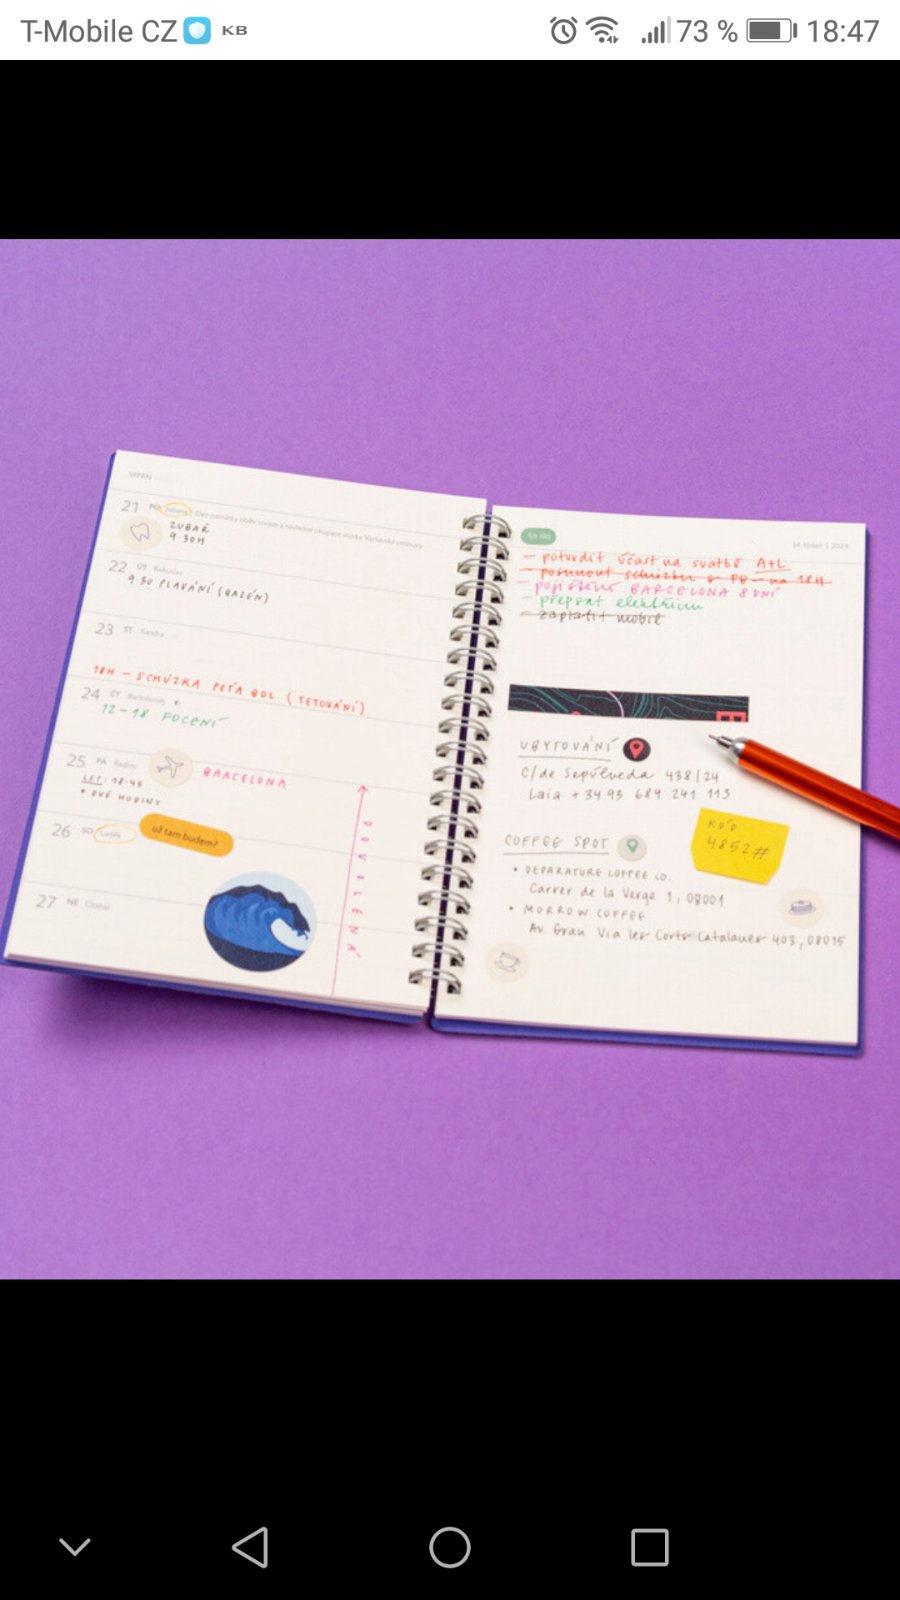 T-Mobile CZ KB 73 % 18:47
SRPEN
21 PO Johana Den památky obětí invaze a následné okupace vojsky Varšavské smlouvy
ZUBAŘ
9:30H
22 ÚT Bohuslav
9:30 PLAVÁNÍ (BAZÉN)
23 ST Sandra
18H – SCHŮZKA PEŤA BOL (TETOVÁNÍ)
24 ČT Bartoloměj
12–18 FOCENÍ
25 PÁ Radim
BARCELONA
LET: 18:45
+ DVĚ HODINY
26 SO Luděk
už tam budem?
27 NE Otakar
DOVOLENÁ
to do
34. týden | 2023
– potvrdit účast na svatbě A+L
– posunout schůzku s PB – na 18H
– pojištění BARCELONA 8 DNÍ
– přepsat elektřinu
– zaplatit mobil
UBYTOVÁNÍ
C/de Sepúlveda 438/24
Laia +34 93 684 241 113
KÓD
4852#
COFFEE SPOT
• DEPARATURE COFFEE CO.
Carrer de la Verge 1, 08001
• MORROW COFFEE
Av. Gran Via les Corts Catalanes 403, 08015